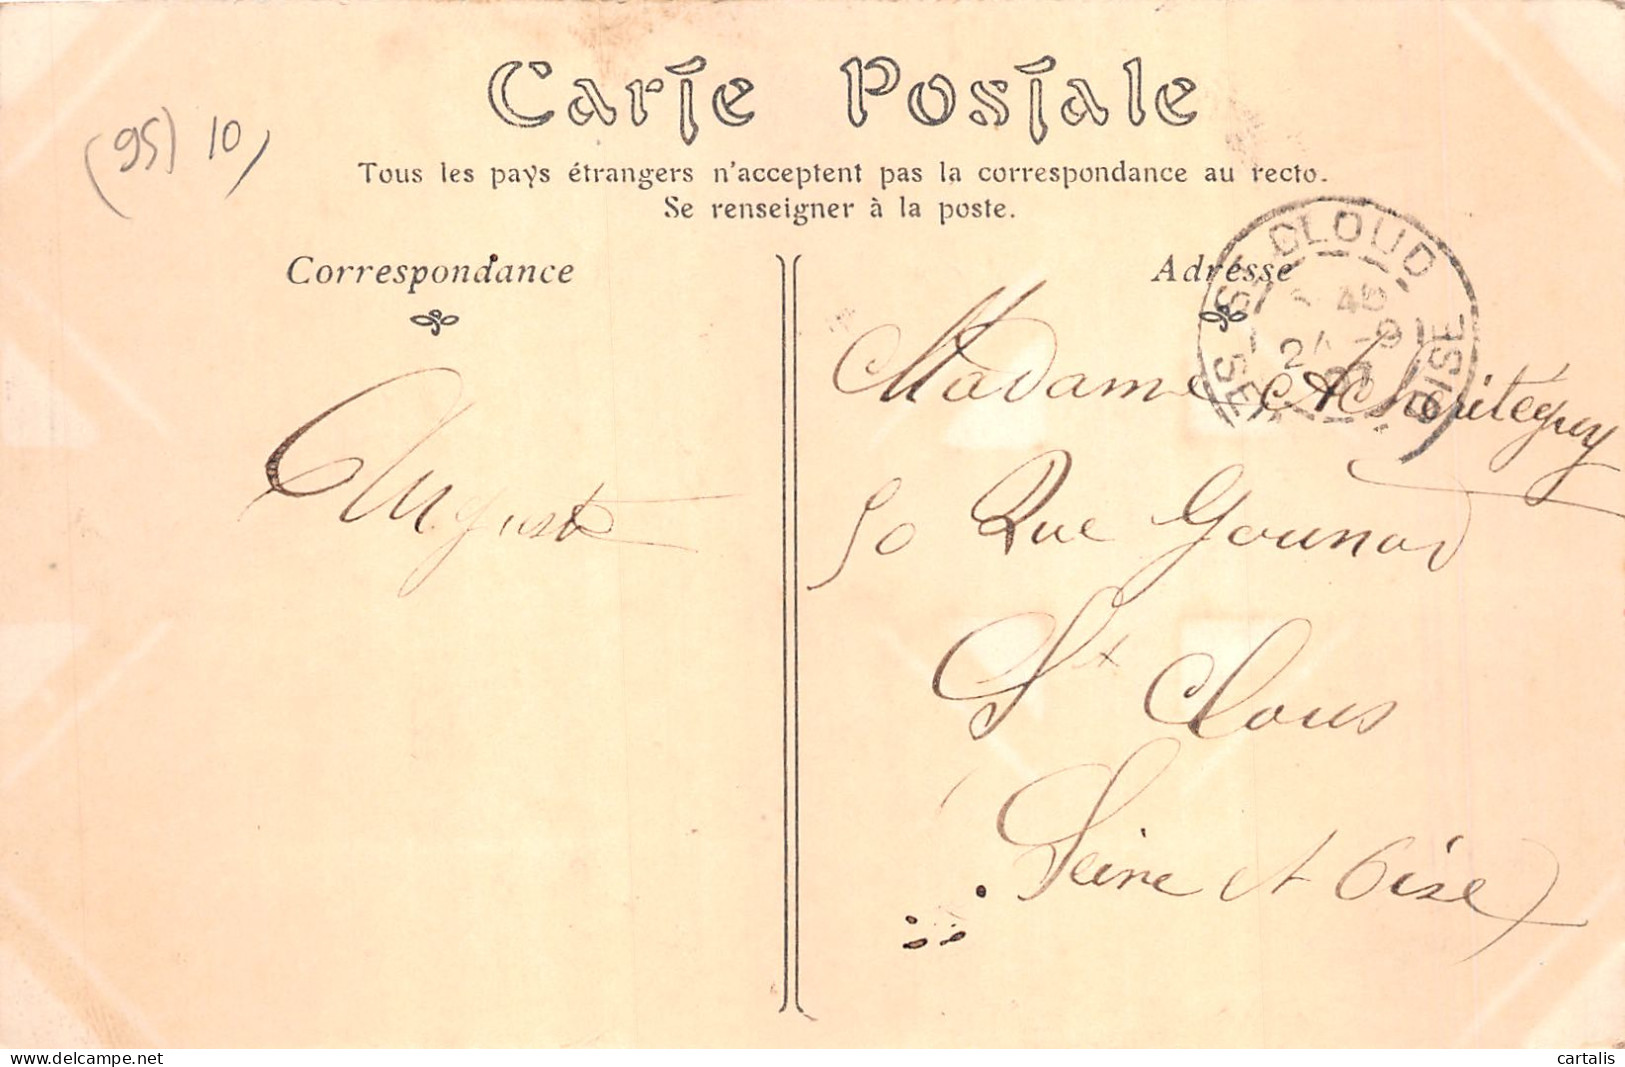 Carte Postale
(95) 10
Tous les pays étrangers n'acceptent pas la correspondance au recto.
Se renseigner à la poste.
Correspondance
Adresse
ST CLOUD
SE OISE
Auguste
Madame Acheritéguy
50 Rue Gounod
St Cloud
Seine et Oise
delcampe.net
cartalis